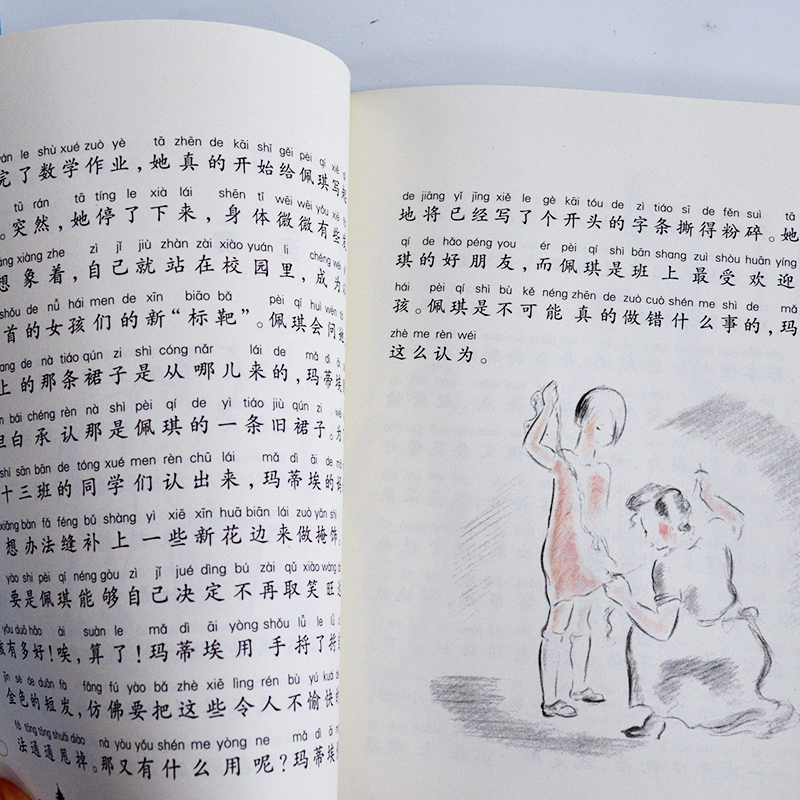 yán le shù xué zuò yè tā zhēn de kāi shǐ gěi pèi qí xiě
完了数学作业，她真的开始给佩琪写
tū rán tā tíng le xià lái shēn tǐ wēi wēi yǒu xiē
。突然，她停了下来，身体微微有些
xiàng zhe zì jǐ jiù zhàn zài xiào yuán li chéng wéi
想象着，自己就站在校园里，成为
shǒu de nǚ hái men de xīn biāo bǎ pèi qí huì wèn
首的女孩们的新“标靶”。佩琪会问她
de nà tiáo qún zi shì cóng nǎr lái de mǎ dì āi
上的那条裙子是从哪儿来的，玛蒂埃
bái chéng rèn nà shì pèi qí de yì tiáo jiù qún zi wèi
坦白承认那是佩琪的一条旧裙子。为
shí sān bān de tóng xué men rèn chū lái mǎ dì āi de
十三班的同学们认出来，玛蒂埃的妈
xiǎng bàn fǎ féng bǔ shàng yì xiē xīn huā biān lái zuò yǎn shì
想办法缝补上一些新花边来做掩饰
yào shi pèi qí néng gòu zì jǐ jué dìng bú zài qǔ xiào
要是佩琪能够自己决定不再取笑旺达
yǒu duō hǎo āi suàn le mǎ dì āi yòng shǒu lǚ le
该有多好！唉，算了！玛蒂埃用手捋了捋
jīn sè de duǎn fà fǎng fú yào bǎ zhè xiē lìng rén bù yú kuài
金色的短发，仿佛要把这些令人不愉快
fǎ tōng tōng shuǎi diào nà yòu yǒu shén me yòng ne mǎ dì āi
法通通甩掉。那又有什么用呢？玛蒂埃
de jiāng yǐ jīng xiě le gè kāi tóu de zì tiáo sī de fěn suì tā
地将已经写了个开头的字条撕得粉碎。她
qí de hǎo péng you ér pèi qí shì bān shang zuì shòu huān yíng
琪的好朋友，而佩琪是班上最受欢迎
hái pèi qí shì bù kě néng zhēn de zuò cuò shén me shì de mǎ
孩。佩琪是不可能真的做错什么事的，玛
zhè me rèn wéi
这么认为。